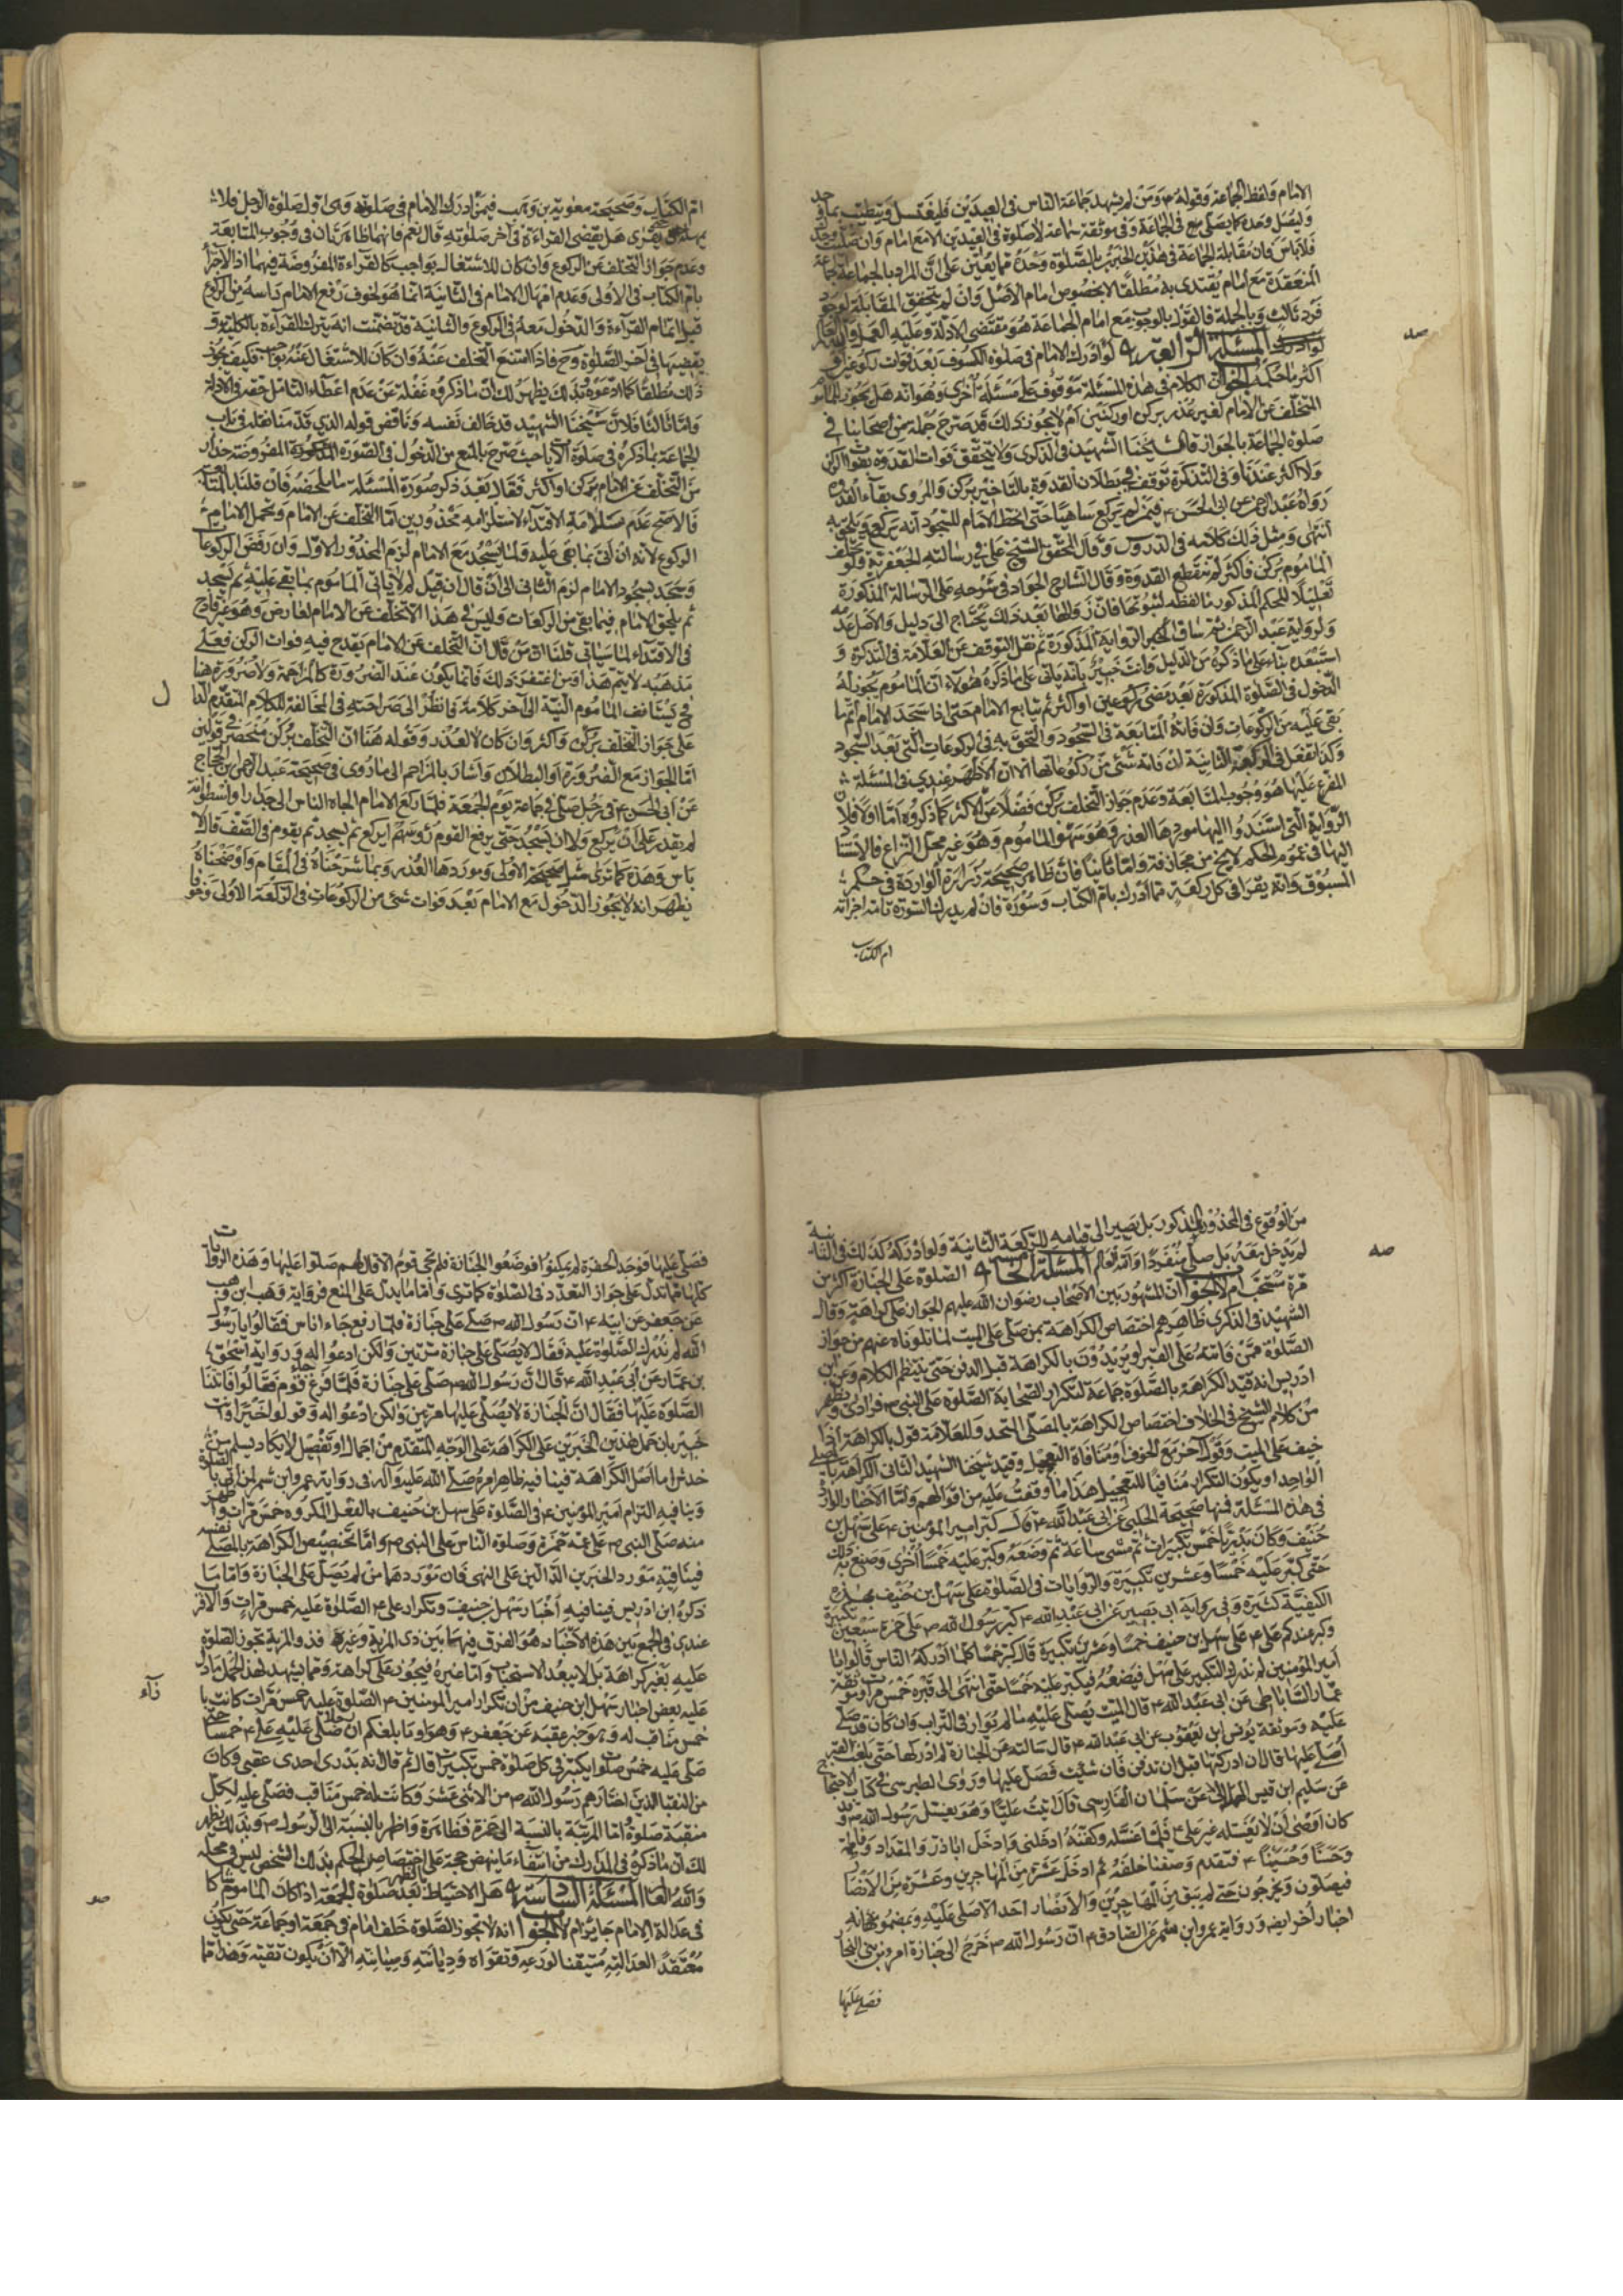 الامام ولفظ الجماعة وقوله ع ومن لم يشهد جماعة الناس في العيدين فليغتسل وليتطيب بما وجد
وليصل وحده كما يصلي في الجماعة وفي موثقة سماعة لا صلوة في العيدين الا مع امام وان صليت وحدك
فلا باس فان مقابلة الجماعة في هذين الخبرين بالصلوة وحده مما يعين على ان المراد بالجماعة جماعة
المنعقدة مع امام يقتدى به مطلقا لا بخصوص امام الاصل وان لم يتحقق المقابلة لوجود
فرد ثالث وبالجملة فالقول بالوجوب مع امام الجماعة هو مقتضى الادلة وعليه العمل والله العالم
المسئلة الرابعة لو ادرك الامام في صلوة الكسوف بعد فوات ركوع او
اكثر ما حكمه الجواب الكلام في هذه المسئلة موقوف على مسئلة اخرى وهو انه هل يجوز للماموم
التخلف عن الامام لغير عذر بركن او ركنين ام لا يجوز ذلك قد صرح جملة من اصحابنا في
صلوة الجماعة بالجواز قال شيخنا الشهيد في الذكرى ولا يتحقق فوات القدوة بفوات الركن
ولا اكثر عندنا وفي التذكرة توقف في بطلان القدوة بالتاخير بركن والمروي بقاء القدوة
رواه عبد الرحمن عن ابي الحسن ع فيمن لم يركع ساهيا حتى انحط الامام للسجود انه يركع ويلحق به
انتهى ومثل ذلك كلامه في الدروس وقال المحقق الشيخ علي في رسالته الجعفرية فلو تخلف
الماموم بركن فاكثر لم تنقطع القدوة وقال الشارح الجواد في شرحه على الرسالة المذكورة
تعليلا للحكم المذكور ما لفظه لثبوتها فان زوالها بعد ذلك يحتاج الى دليل والاصل عدمه
ولرواية عبد الرحمن ثم ساق الخبر الرواية المذكورة ثم نقل التوقف عن العلامة في التذكرة و
استبعده بناء على ما ذكره من الدليل وانت خبير بانه ياتي على ما ذكره هولاء ان الماموم يجوز له
الدخول في الصلوة المذكورة بعد مضي ركوعين او اكثر ثم يتابع الامام حتى اذا سجد الامام اتم ما
بقى عليه من الركوعات وان فاته المتابعة في السجود والتحق به في الركوعات التي بعد السجود
وكذا يفعل في الركعة الثانية لان فاته شئ من ركوعاتها الا ان الاظهر عندي في المسئلة
المفرع عليها هو وجوب المتابعة وعدم جواز التخلف بركن فضلا عن الاكثر كما ذكروه اما اولا فلان
الرواية التي استندوا اليها موردها العذر وهو سهو الماموم وهو غير محل النزاع فالاستناد
اليها في عموم الحكم لا يخ من مجازفة واما ثانيا فان ظاهر صحيحة زرارة الواردة في حكم
المسبوق وانه يقرا في كل ركعة مما ادرك بام الكتاب وسورة فان لم يدرك السورة تامة اجزاته
ام الكتاب
صد
ام الكتاب وصحيحة معوية بن وهب فيمن ادرك الامام في صلوته وهي اول صلوة الرجل فلا
يمهله حتى يقرى هل يقضي القراءة في آخر صلوته قال نعم فانهما ظاهرتان في وجوب المتابعة
وعدم جواز التخلف عن الركوع وان كان للاشتغال بواجب كالقراءة المفروضة فيهما اذ الاجزاء
بام الكتاب في الاولى وعدم امهال الامام في الثانية انما هو لخوف رفع الامام راسه من الركوع
قبل اتمام القراءة والدخول معه في الركوع والثانية قد تضمنت انه يترك القراءة بالكلية و
يقضيها في آخر الصلوة وح فاذا امتنع التخلف عنه وان كان للاشتغال عنه بواجب فكيف يجوز
ذلك مطلقا كما ادعوه وبذلك يظهر لك ان ما ذكروه غفلة عن عدم اعطاء التامل حقه في الادلة
واما ثالثا فلان شيخنا الشهيد قد خالف نفسه وناقض قوله الذي قدمنا نقله في باب
الجماعة بما ذكره في صلوة الآيات حيث صرح بالمنع من الدخول في الصورة المفروضة حذرا
من التخلف عن الامام بركن او اكثر فقال بعد ذكر صورة المسئلة ما ملخصه فان قلنا بالمتابعة
فالاصح عدم صلاحية الاقتداء لاستلزامه محذورين اما التخلف عن الامام وتحمل الامام
الركوع لانه ان اتى بما بقى عليه ولما يسجد مع الامام لزم المحذور الاول وان رفض الركوعات
وسجد بسجود الامام لزم الثاني الى ان قال ان قيل لم لا ياتي الماموم بما بقى عليه ثم يسجد
ثم يلحق الامام فيما بقى من الركعات وليس في هذا الا تخلف عن الامام لعارض وهو غير قادح
في الاقتداء لما سياتي قلنا من قال ان التخلف عن الامام يقدح فيه فوات الركن فعلى
مذهبه لا يتم هذا ومن اغتفر ذلك فانما يكون عند الضرورة كالمزاحمة ولا ضرورة هنا
فح يستانف الماموم النية الى آخر كلامه فانظر الى صراحته في المخالفة للكلام المتقدم الدال
على جواز التخلف بركن واكثر وان كان لا لعذر وقوله هنا ان التخلف بركن منحصر في قولين
اما الجواز مع الضرورة او البطلان واشار بالمزاحم الى ما روى في صحيحة عبد الرحمن بن الحجاج
عن ابي الحسن ع في رجل صلى في جماعة يوم الجمعة فلما ركع الامام الجاه الناس الى جدار او اسطوانة
لم يقدر على ان يركع ولا ان يسجد حتى يرفع القوم رؤسهم ايركع ثم يسجد ثم يقوم في الصف قال لا
باس وهذه كما ترى مثل صحيحة الاولى وموردها العذر وبما شرحناه في المقام واوضحناه
يظهر انه لا يجوز الدخول مع الامام بعد فوات شئ من الركوعات في الركعة الاولى وخوفا
ل
من الوقوع في المحذور المذكور بل يصير الى قيامه للركعة الثانية ولو ادركه كذلك في الثانية
لم يدخل معه بل صلى منفردا والله العالم المسئلة الخامسة الصلوة على الجنازة اكثر من
مرة تستحب ام لا الجواب ان المشهور بين الاصحاب رضوان الله عليهم الجواز على كراهة وقال
الشهيد في الذكرى ظاهرهم اختصاص الكراهة بمن صلى على الميت لما تلوناه عنهم من جواز
الصلوة ممن فاتته على القبر او يريدون بالكراهة قبل الدفن حتى ينتظم الكلام وعن ابن
ادريس انه قيد الكراهة بالصلوة جماعة لتكرار الصحابة الصلوة على النبي ص فرادى ويظهر
من كلام الشيخ في الخلاف اختصاص الكراهة بالمصلي المتحد وللعلامة قول بالكراهة اذا
خيف على الميت وقول آخر مع الخوف او منافاة التعجيل وقيد شيخنا الشهيد الثاني الكراهة
الواحد او يكون التكرار منافيا للتعجيل هذا ما وقفت عليه من اقوالهم واما الاخبار الواردة
في هذه المسئلة فمنها صحيحة الحلبي عن ابي عبد الله ع قال كبر امير المؤمنين ع على سهل بن
حنيف وكان بدريا خمس تكبيرات ثم مشى ساعة ثم وضعه وكبر عليه خمسا اخرى وصنع به ذلك
حتى كبر عليه خمسا وعشرين تكبيرة والروايات في الصلوة على سهل بن حنيف بهذه
الكيفية كثيرة وفي رواية ابي بصير عن ابي عبد الله ع كبر رسول الله ص على حمزة سبعين تكبيرة
وكبر عندكم علي ع على سهل ابن حنيف خمسا وعشرين تكبيرة قال كبر خمسا كلما ادركه الناس قالوا يا
امير المؤمنين لم ندرك التكبير على سهل فيضعه فيكبر عليه خمسا حتى انتهى الى قبره خمس مرات وموثقة
عمار الساباطي عن ابي عبد الله ع قال الميت يصلى عليه ما لم يوار في التراب وان كان قد صلى
عليه وموثقة يونس ابن يعقوب عن ابي عبد الله ع قال سالته عن الجنازة لم ادركها حتى بلغت القبر
اصلي عليها قال ان ادركتها قبل ان تدفن فان شئت فصل عليها وروى الطبرسي في كتاب الاحتجاج
عن سليم ابن قيس الهلالي عن سلمان الفارسي قال اتيت عليا وهو يغسل رسول الله ص وقد
كان اوصى ان لا يغسله غير علي ع فلما غسله وكفنه ادخلني وادخل اباذر والمقداد وفاطمة
وحسنا وحسينا ع فتقدم وصففنا خلفه ثم ادخل عشرة من المهاجرين وعشرة من الانصار
فيصلون ويخرجون حتى لم يبق من المهاجرين والانصار احد الا صلى عليه وبمضمونه
اخبار اخر ايضا ورواية عمرو ابن شمر عن الصادق ع ان رسول الله ص خرج الى جنازة امراة من بني النجار
فصلى عليها
صه
فصلى عليها فوجد الحفرة لم يمكنوا فوضعوا الجنازة فلم يجئ قوم الا قال لهم صلوا عليها وهذه الروايات
كلها مما تدل على جواز التعدد في الصلوة كما ترى واما ما يدل على المنع فرواية وهب بن وهب
عن جعفر عن ابيه ع ان رسول الله ص صلى على جنازة فلما رفع جاء اناس فقالوا يا رسول
الله لم ندرك الصلوة عليه فقال لا يصلى على جنازة مرتين ولكن ادعوا له ورواية اسحق
بن عمار عن ابي عبد الله ع قال ان رسول الله ص صلى على جنازة فلما فرغ جاء قوم فقالوا فاتتنا
الصلوة عليها فقال ان الجنازة لا يصلى عليها مرتين ولكن ادعوا له وقولوا خيرا وانت
خبير بان حمل هذين الخبرين على الكراهة على الوجه المتقدم من اجمال او تفصيل لا يكاد يسلم من
خدش اما اصل الكراهة فينافيه ظاهر امره صلى الله عليه وآله في رواية عمرو ابن شمر
وينافيه التزام امير المؤمنين ع في الصلوة على سهل بن حنيف بالفعل المكروه خمس مرات
منه صلى النبي ص على عمه حمزة وصلوة الناس على النبي ص واما تخصيص الكراهة بالمصلي نفسه
فينافيه مورد الخبرين الدالين على النهي فان موردهما من لم يصل على الجنازة واما ما
ذكره ابن ادريس فينافيه اخبار سهل بن حنيف وتكرار علي ع الصلوة عليه خمس مرات والاقرب
عندي في الجمع بين هذه الاخبار هو الفرق فيها بين ذي المزية وغيره فذو المزية تجوز الصلوة
عليه بغير كراهة بل لا يبعد الاستحباب واما غيره فيجوز على كراهة ومما يشهد لهذا الحمل ما دل
عليه بعض اخبار سهل ابن حنيف من ان تكرار امير المومنين ع الصلوة عليه خمس مرات كانت
خمس مناقب له وهو خبر عقبه عن جعفر ع وهو اوما بلغكم ان رجلا صلى عليه علي ع خمسا حتى
صلى عليه خمس صلوات يكبر في كل صلوة خمس تكبيرات قال ثم قال انه بدري احدى عقبي وكان
من النقبا الذين اختارهم رسول الله ص من الاثنى عشر وكانت له خمس مناقب فصلى عليه لكل
منقبة صلوة اما المزية بالنسبة الى حمزة فظاهرة واظهر بالنسبة الى الرسول ص وبذلك يظهر
لك ان ما ذكره في المدارك من انتفاء ما ينهض حجة على اختصاص الحكم بذلك الشخص ليس في محله
والله العالم المسئلة السادسة هل الاحتياط بعد صلوة الجمعة اذا كان الماموم شاكا
في عدالة الامام جايز ام لا الجواب انه لا تجوز الصلوة خلف امام في جمعة او جماعة حتى يكون
معتقدا لعدالته متيقنا لورعه وتقواه وديانته وصيانته الا ان يكون تقية وهذا مما
زآء
صو